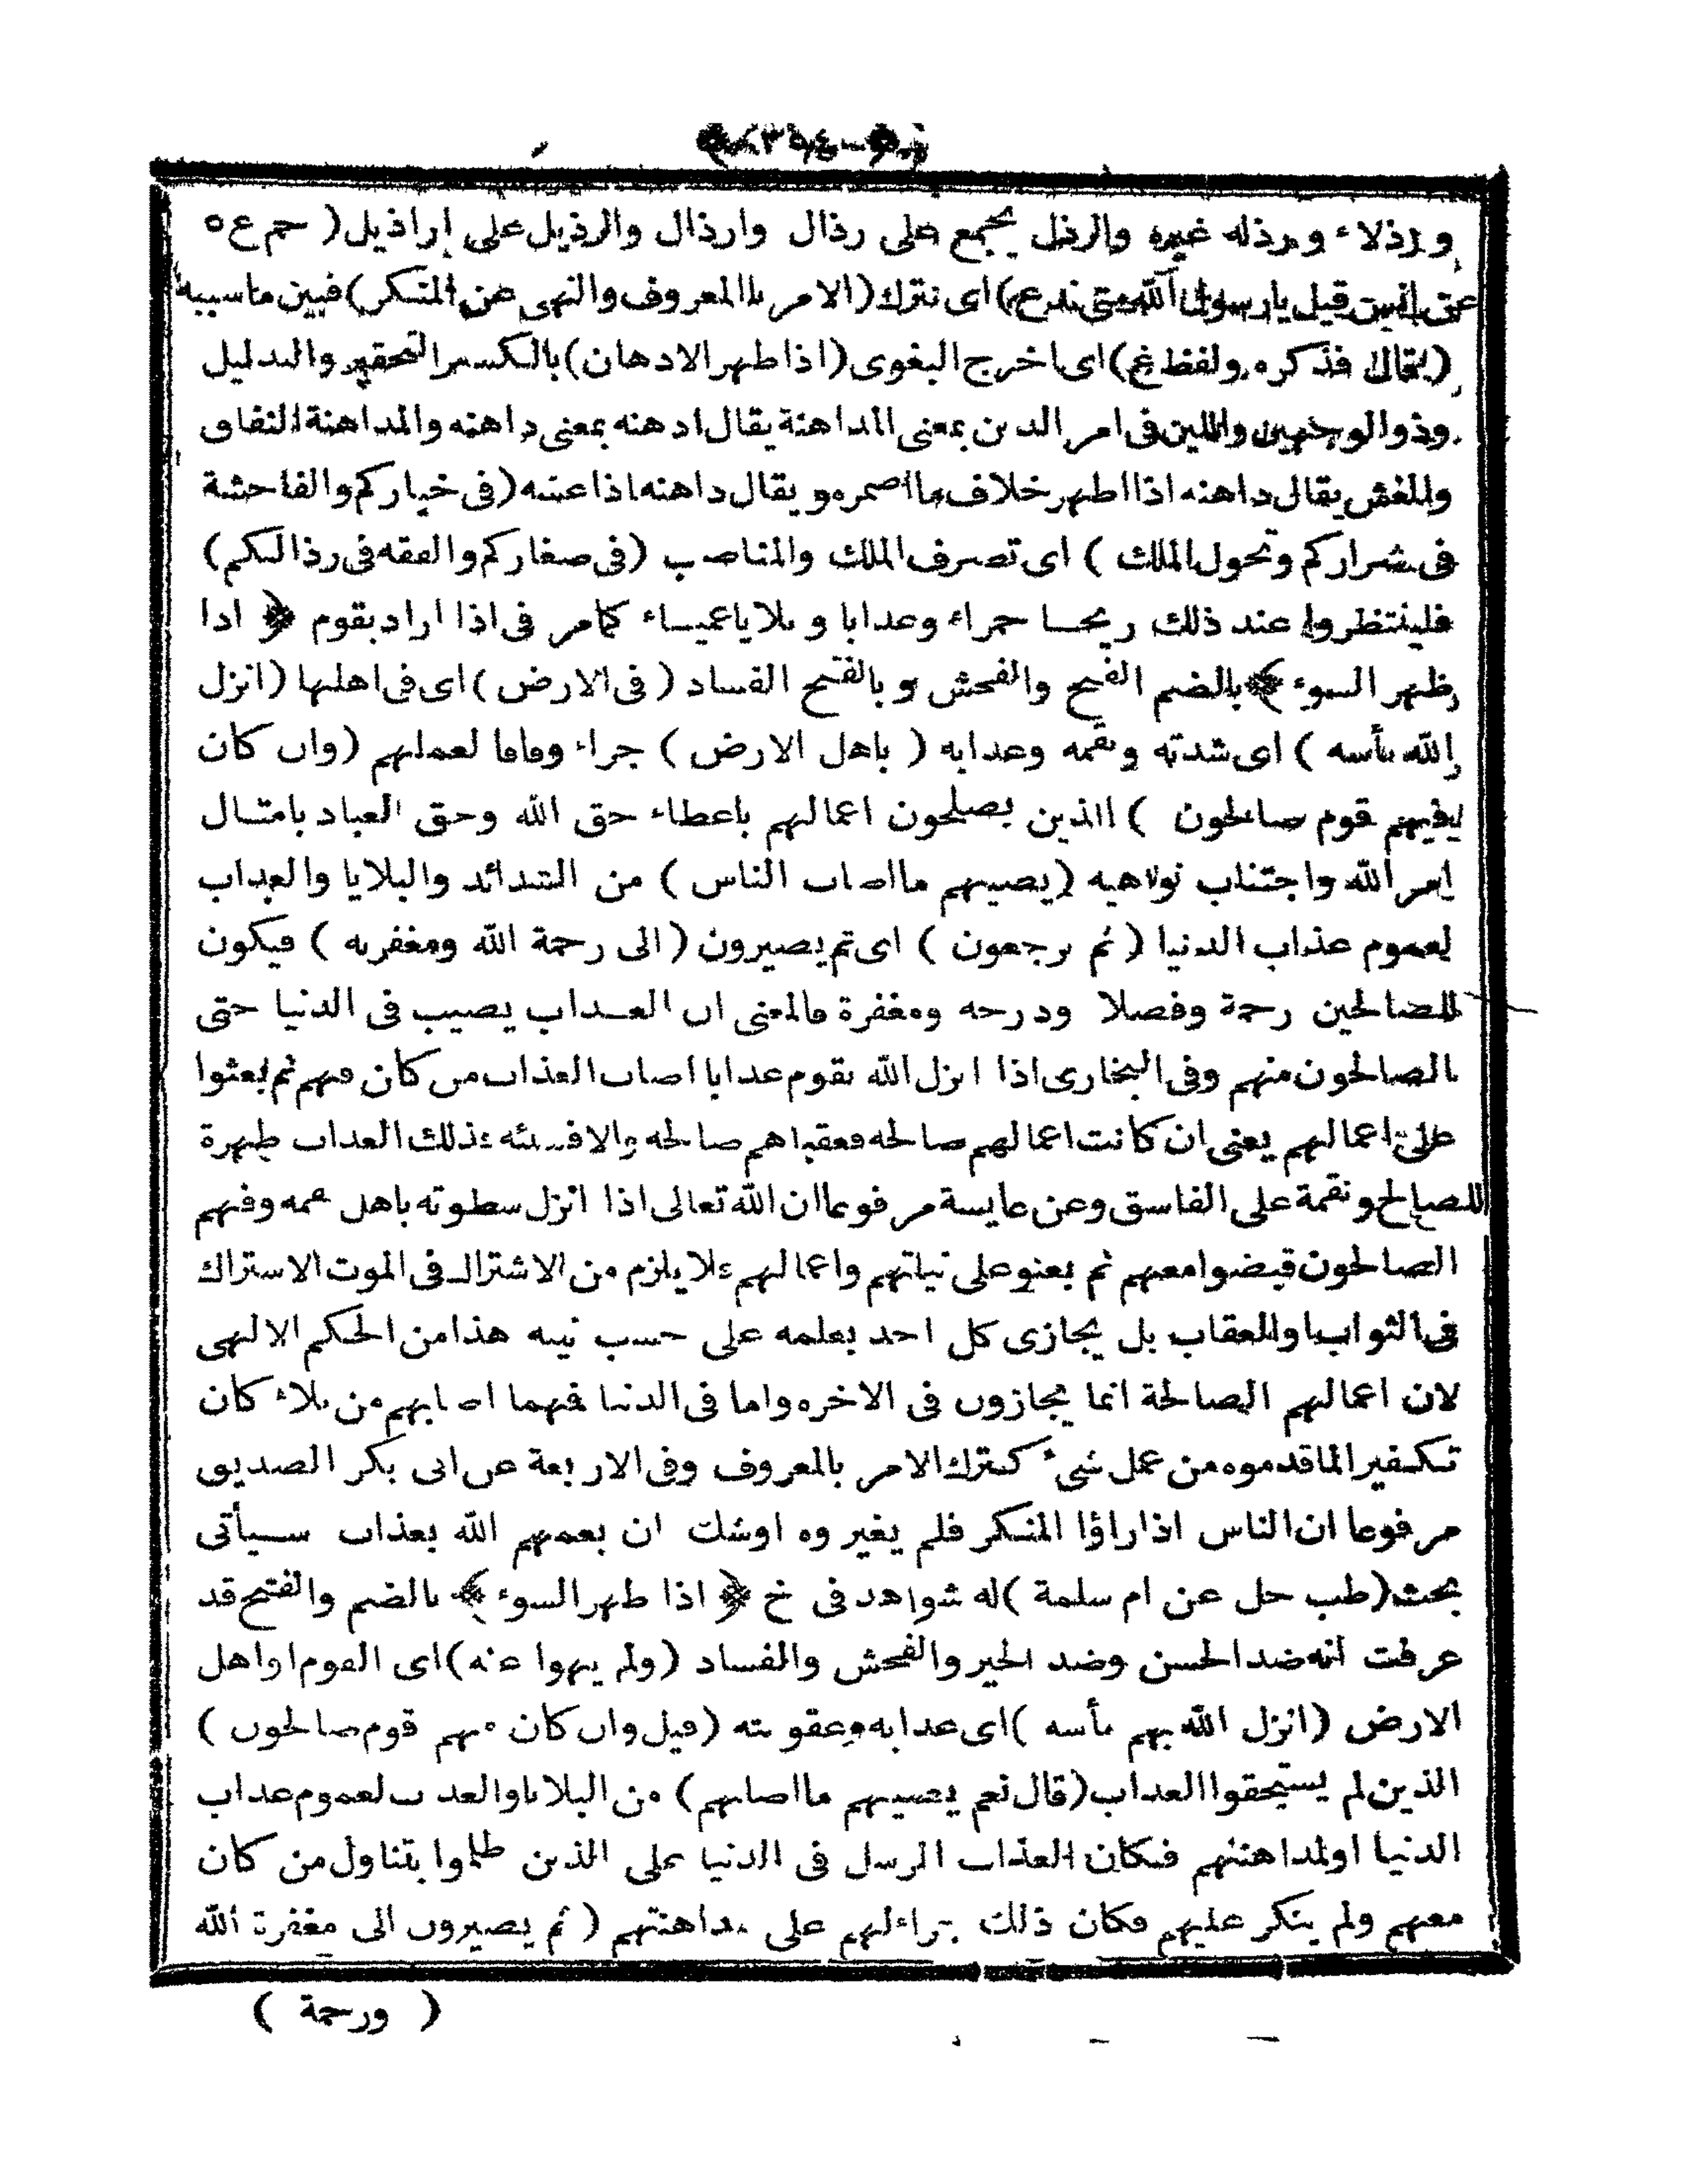 ٣٥٤
ورذلاء ورذله غيره والرذل يجمع على رذال وارذال والرذيل على اراذيل ( حم ع ه
عن انس قيل يا رسول الله متى ندع) اى نترك (الامر بالمعروف والنهى عن المنكر) فبين ما سببه
(يقال فذكره ولفظ غ) اى اخرج البغوى (اذا ظهر الادهان) بالكسر التحقير والتدليل
وذو الوجهين واللين فى امر الدين بمعنى المداهنة يقال ادهنه بمعنى داهنه والمداهنة النفاق
والغش يقال داهنه اذا اظهر خلاف ما اضمره ويقال داهنه اذا غشه (فى خياركم والفاحشة
فى شراركم وتحول الملك ) اى تصرف الملك والمناصب (فى صغاركم والفقه فى رذالكم)
فلينتظروا عند ذلك ريحا حمراء وعذابا وبلايا عمياء كما مر فى اذا اراد بقوم ﴿ اذا
ظهر السوء ﴾ بالضم القبح والفحش وبالفتح الفساد ( فى الارض ) اى فى اهلها (انزل
الله بأسه ) اى شدته ونقمه وعذابه ( باهل الارض ) جزاء وفاقا لعملهم (وان كان
فيهم قوم صالحون ) الذين يصلحون اعمالهم باعطاء حق الله وحق العباد بامتثال
امر الله واجتناب نواهيه (يصيبهم ما اصاب الناس ) من الشدائد والبلايا والعذاب
لعموم عذاب الدنيا ( ثم يرجعون ) اى ثم يصيرون (الى رحمة الله ومغفرته ) فيكون
للصالحين رحمة وفضلا ودرجه ومغفرة فالمعنى ان العذاب يصيب فى الدنيا حتى
الصالحون منهم وفى البخارى اذا انزل الله بقوم عذابا اصاب العذاب من كان فيهم ثم بعثوا
على اعمالهم يعنى ان كانت اعمالهم صالحه فعقباهم صالحه والا فسيئه فذلك العذاب طهرة
للصالح ونقمة على الفاسق وعن عايشة مرفوعا ان الله تعالى اذا انزل سطوته باهل نقمه وفيهم
الصالحون قبضوا معهم ثم بعثوا على نياتهم واعمالهم فلا يلزم من الاشتراك فى الموت الاشتراك
فى الثواب والعقاب بل يجازى كل احد بعلمه على حسب نيته هذا من الحكم الالهى
لان اعمالهم الصالحة انما يجازون فى الاخره واما فى الدنيا فهما اصابهم من بلاء كان
تكفيرا لما قدموه من عمل شىء كترك الامر بالمعروف وفى الاربعة عن ابى بكر الصديق
مرفوعا ان الناس اذا راؤا المنكر فلم يغيروه اوشك ان يعمهم الله بعذاب سيأتى
بحث (طب حل عن ام سلمة ) له شواهد فى خ ﴿ اذا ظهر السوء ﴾ بالضم والفتح قد
عرفت انه ضد الحسن وضد الخير والفحش والفساد (ولم ينهوا عنه) اى القوم او اهل
الارض (انزل الله بهم بأسه ) اى عذابه وعقوبته (قيل وان كان فيهم قوم صالحون )
الذين لم يستحقوا العذاب (قال نعم يصيبهم ما اصابهم) من البلايا والعذاب لعموم عذاب
الدنيا او لمداهنتهم فكان العذاب المرسل فى الدنيا على الذين ظلموا يتناول من كان
معهم ولم ينكر عليهم فكان ذلك جزاء لهم على مداهنتهم ( ثم يصيرون الى مغفرة الله
( ورحمة )